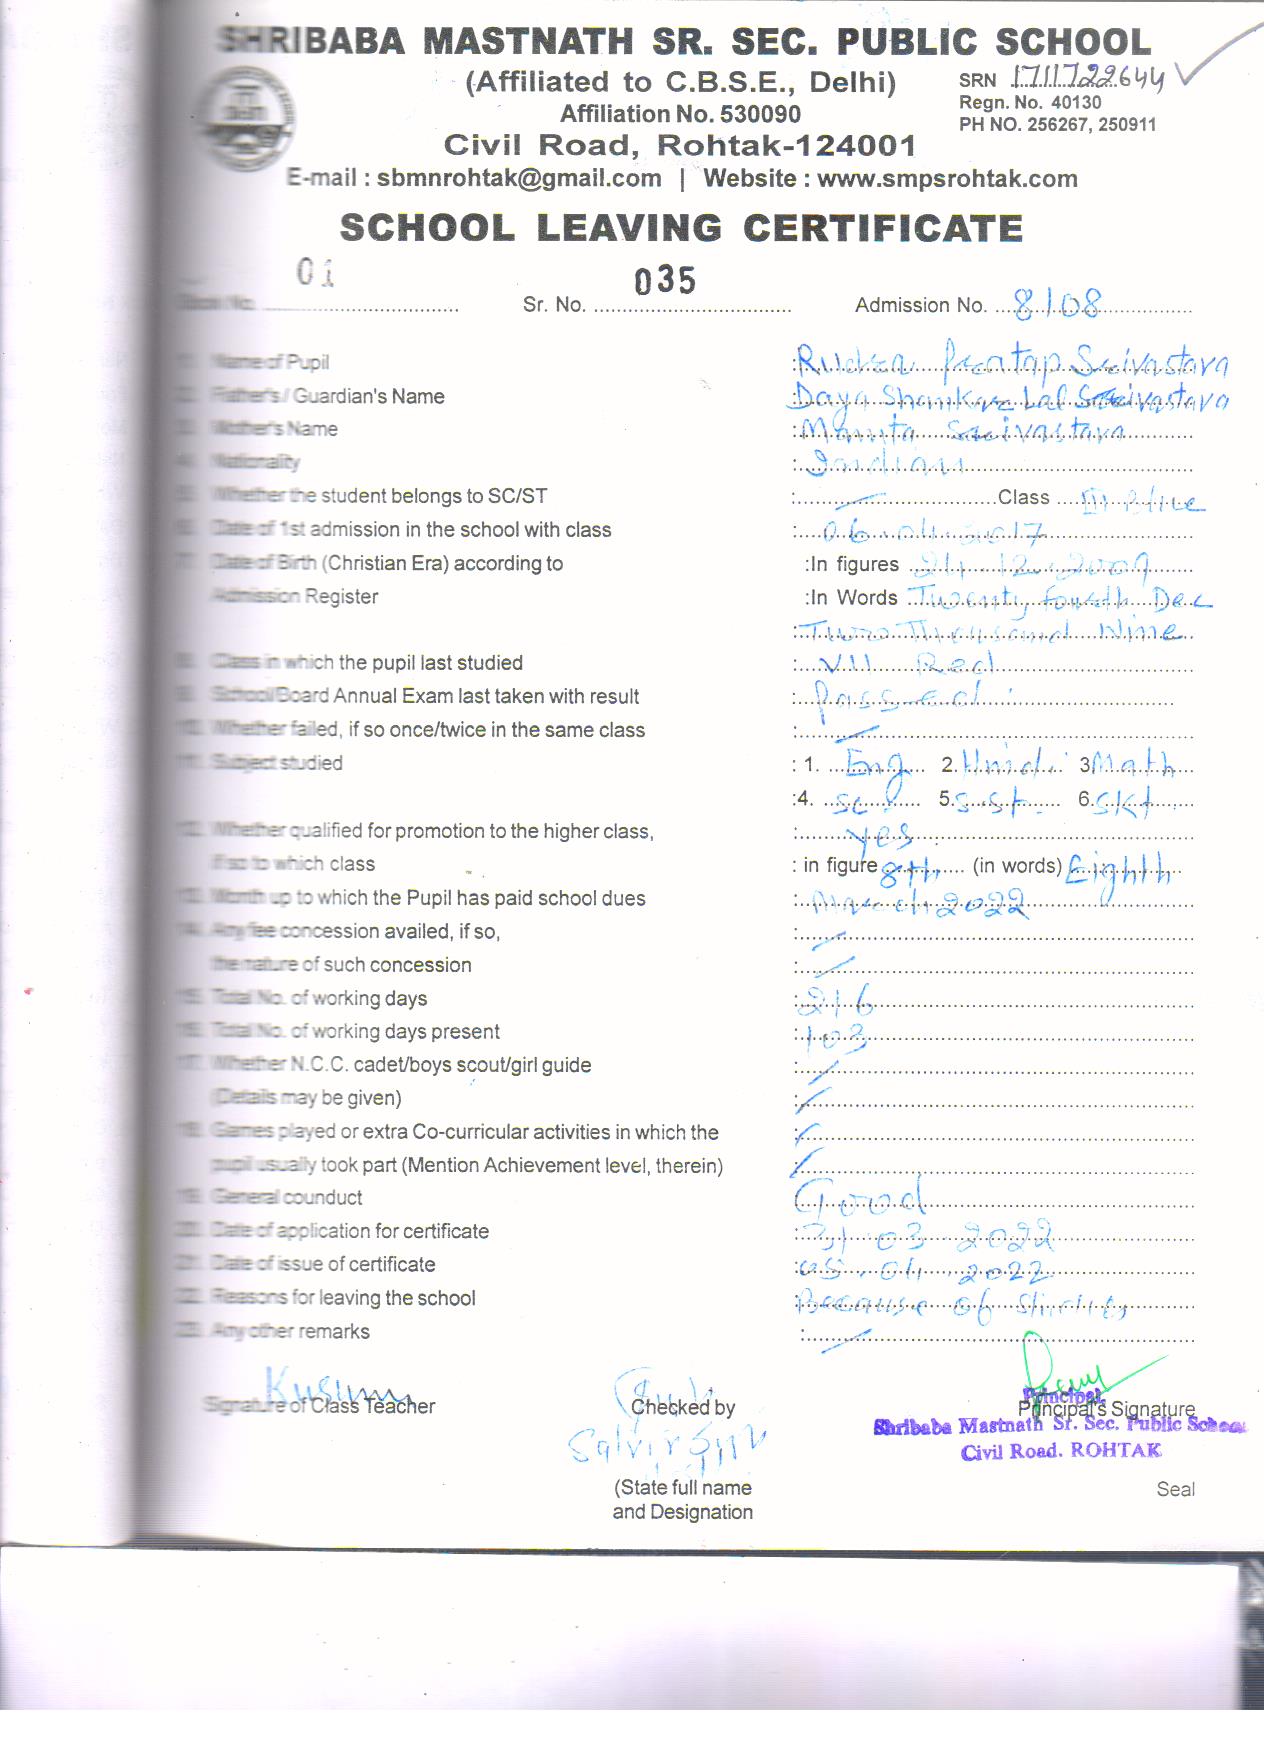 SHRIBABA MASTNATH SR. SEC. PUBLIC SCHOOL
(Affiliated to C.B.S.E., Delhi)
SRN 1711722644
Affiliation No. 530090
Regn. No. 40130
PH NO. 256267, 250911
Civil Road, Rohtak-124001
E-mail : sbmnrohtak@gmail.com | Website : www.smpsrohtak.com
SCHOOL LEAVING CERTIFICATE
Book No. 01 Sr. No. 035 Admission No. 8108
1. Name of Pupil : Rudra Pratap Srivastava
2. Father's / Guardian's Name : Daya Shankar Lal Srivastava
3. Mother's Name : Mamta Srivastava
4. Nationality : Indian
5. Whether the student belongs to SC/ST : Class III Blue
6. Date of 1st admission in the school with class : 06.04.2017
7. Date of Birth (Christian Era) according to :In figures 24.12.2009
Admission Register :In Words Twenty fourth Dec
: Two Thousand Nine
8. Class in which the pupil last studied : VII Red
9. School/Board Annual Exam last taken with result : Passed
10. Whether failed, if so once/twice in the same class :
11. Subject studied : 1. Eng 2. Hindi 3. Math
:4. Sci 5. S.St. 6. Skt
12. Whether qualified for promotion to the higher class, : yes
if so to which class : in figure 8th (in words) Eighth
13. Month up to which the Pupil has paid school dues : March 2022
14. Any fee concession availed, if so, :
the nature of such concession :
15. Total No. of working days : 216
16. Total No. of working days present : 103
17. Whether N.C.C. cadet/boys scout/girl guide :
(Details may be given) :
18. Games played or extra Co-curricular activities in which the :
pupil usually took part (Mention Achievement level, therein) :
19. General counduct : Good
20. Date of application for certificate : 31 03 2022
21. Date of issue of certificate : 05.04.2022
22. Reasons for leaving the school : Because of
23. Any other remarks :
Kusum
Signature of Class Teacher Checked by Principal's Signature
Principal
Shribaba Mastnath Sr. Sec. Public School
Civil Road. ROHTAK
(State full name Seal
and Designation